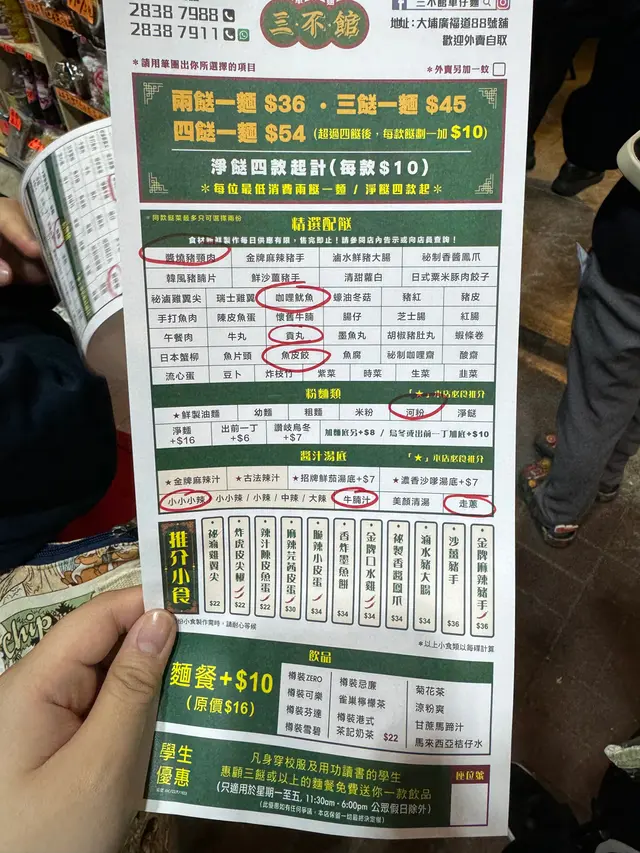 2838 7988
2838 7911
三不館
三不館車仔麵
地址:大埔廣福道88號舖
歡迎外賣自取
*請用筆圈出你所選擇的項目
*外賣另加一蚊
兩餸一麵 $36 · 三餸一麵 $45
四餸一麵 $54 (超過四餸後,每款餸劃一加 $10)
淨餸四款起計(每款$10)
*每位最低消費兩餸一麵 / 淨餸四款起*
*同款餸菜最多只可選擇兩份
精選配餸
食材新鮮製作每日供應有限,售完即止!請參閱店內告示或向店員查詢!
醬燒豬頸肉 金牌麻辣豬手 滷水鮮豬大腸 祕制香醬鳳爪
韓風豬腩片 鮮沙薑豬手 清甜蘿白 日式粟米豚肉餃子
祕滷雞翼尖 瑞士雞翼 咖喱魷魚 蠔油冬菇 豬紅 豬皮
手打魚肉 陳皮魚蛋 懷舊牛腩 腸仔 芝士腸 紅腸
午餐肉 牛丸 貢丸 墨魚丸 胡椒豬肚丸 蝦條卷
日本蟹柳 魚片頭 魚皮餃 魚腐 祕制咖喱齋 酸齋
流心蛋 豆卜 炸枝竹 紫菜 時菜 生菜 韭菜
粉麵類
「★」本店必食推介
★鮮製油麵 幼麵 粗麵 米粉 河粉 淨餸
淨麵 +$16 出前一丁 +$6 讚岐烏冬 +$7 加麵底另+$8 / 烏冬或出前一丁加底+$10
醬汁湯底
「★」本店必食推介
★金牌麻辣汁 ★古法辣汁 ★招牌鮮茄湯底+$7 ★濃香沙嗲湯底+$7
小小小辣 小小辣 / 小辣 / 中辣 / 大辣 牛腩汁 美顏清湯 走蔥
推介小食
祕滷雞翼尖 $22
炸虎皮尖椒 $22
辣汁陳皮魚蛋 $22
麻辣芫茜皮蛋 $30
脆辣小皮蛋 $34
香炸墨魚餅 $34
金牌口水雞 $34
祕製香醬鳳爪 $34
滷水豬大腸 $34
沙薑豬手 $36
金牌麻辣豬手 $36
份小食製作需時,請耐心等候
*以上小食類以每碟計算
飲品
麵餐+$10
(原價$16)
樽裝ZERO 樽裝忌廉 菊花茶
樽裝可樂 雀巢檸檬茶 涼粉爽
樽裝芬達 樽裝港式 甘蔗馬蹄汁
樽裝雪碧 茶記奶茶 $22 馬來西亞桔仔水
學生優惠
凡身穿校服及用功讀書的學生
惠顧三餸或以上的麵餐免費送你一款飲品
(只適用於星期一至五, 11:30am - 6:00pm 公眾假日除外)
(此優惠如有任何爭議,本店保留一切最終決定權)
座位號